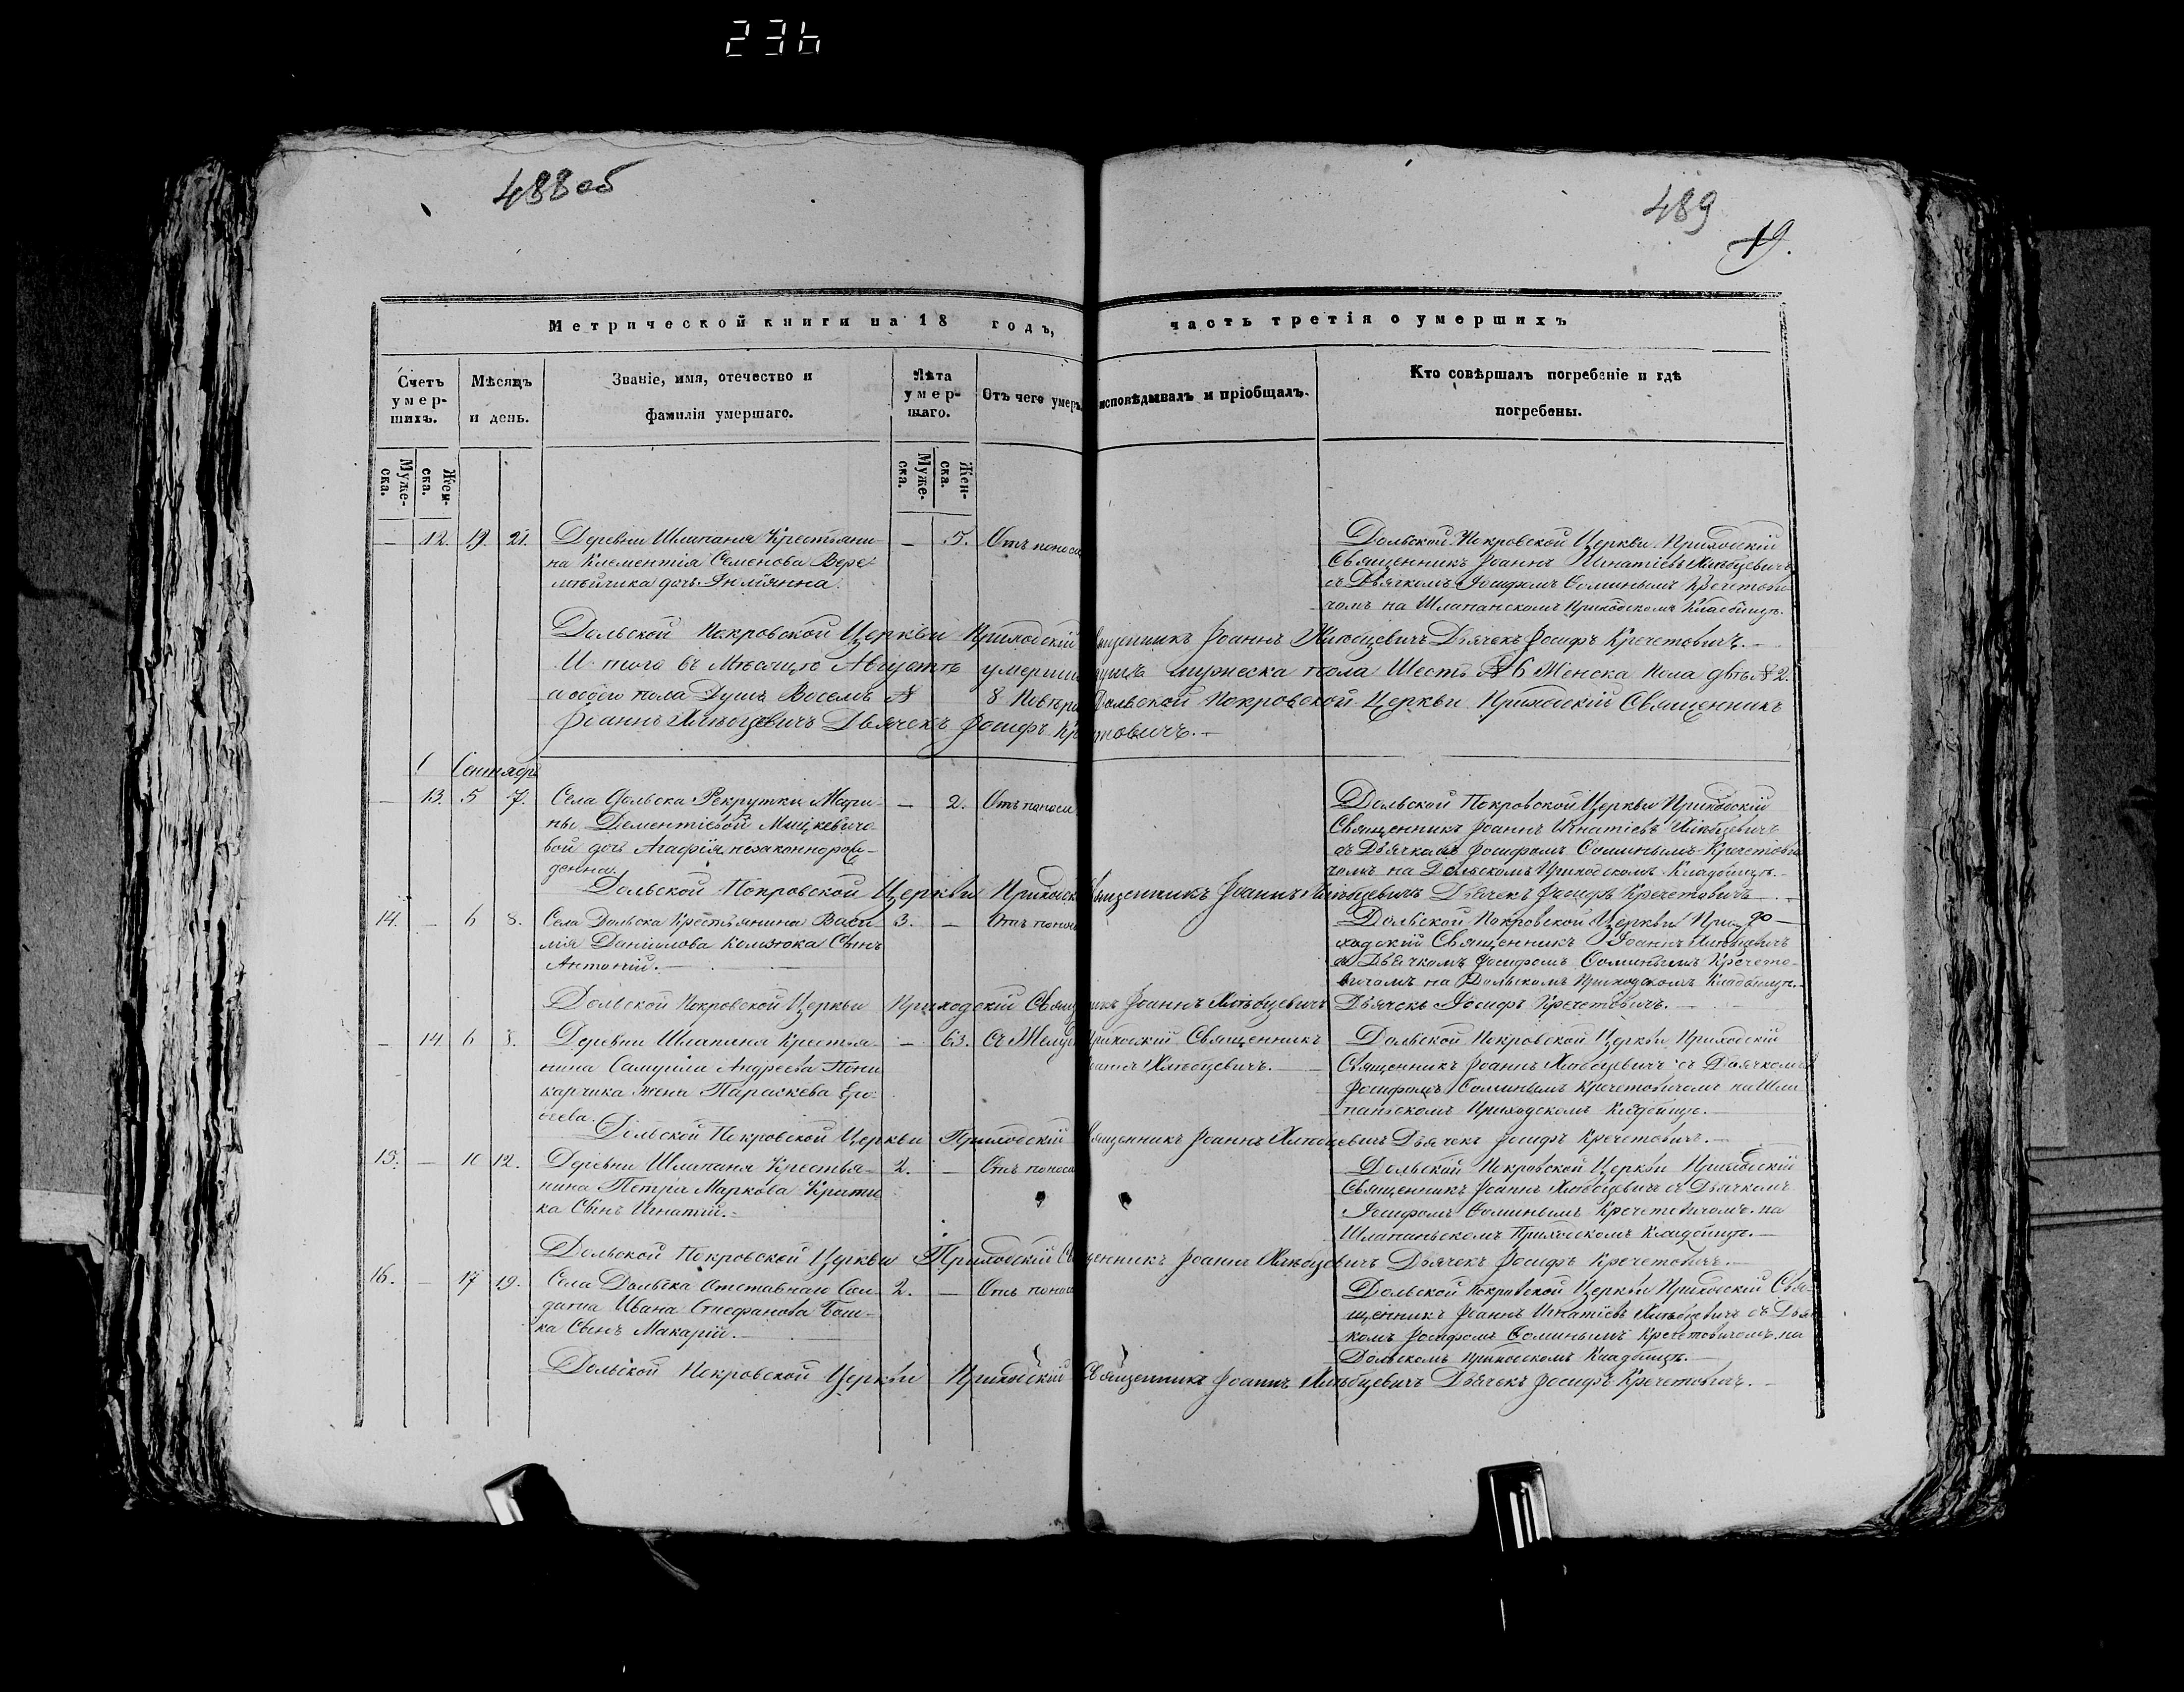 236
488 об
489
19.
Метрической книги на 18 годъ, часть третія о умершихъ
Счетъ умершихъ.
Мѣсяцъ и день.
Званіе, имя, отечество и фамилія умершаго.
Лѣта умершаго.
Отъ чего умеръ
исповѣдывалъ и пріобщалъ.
Кто совѣршалъ погребеніе и гдѣ погребены.
Муже-ска.
Жен-ска.
Муже-ска.
Жен-ска.
— 12. 19. 21. Деревни Шлапаня Крестьяни-
на Клементія Семенова Вере-
мейчика дочь
— 5. Отъ поноса
Дольской Покровской Церкви Приходскій
Священникъ Іоаннъ Игнатіевъ Хлѣбцевичъ
съ Дьячкомъ Іосифомъ Ѳоминымъ Кречетови
чомъ на Шлапанскомъ Приходскомъ Кладбищѣ.
Дольской Покровской Церкви Приходскій Священникъ Іоаннъ Хлѣбцевичъ Дьячекъ Іосифъ Кречетовичъ.
И того въ Мѣсяцѣ Августѣ умерши душъ мужеска пола Шесть № 6 Женска Пола двѣ № 2.
а обоего пола Душъ Восемь № 8 Дольской Покровской Церкви Приходскій Священникъ
Іоаннъ Хлѣбцевичъ Дьячекъ Іосифъ Кречетовичъ.
Сентябрь
— 13. 5 7. Села Дольска Рекрутки Мари-
ны Дементіевой Мицкевичо-
вой дочь Агафія незаконнорож-
денна.
— 2. Отъ поноса
Дольской Покровской Церкви Приходскій
Священникъ Іоаннъ Игнатіевъ Хлѣбцевичъ
съ Дьячкомъ Іосифомъ Ѳоминымъ Кречетови
чомъ на Дольскомъ Приходскомъ Кладбищѣ.
Дольской Покровской Церкви Приходскій Священникъ Іоаннъ Хлѣбцевичъ Дьячекъ Іосифъ Кречетовичъ.
14. — 6 8. Села Дольска Крестьянина Васи-
лія Даниилова Сынъ
Антоній.
3. — Отъ поноса
Дольской Покровской Церкви При-
ходскій Священникъ Іоаннъ Хлѣбцевичъ
съ Дьячкомъ Іосифомъ Ѳоминымъ Кречето-
вичомъ на Дольскомъ Приходскомъ Кладбищѣ.
Дольской Покровской Церкви Приходскій Священникъ Іоаннъ Хлѣбцевичъ Дьячекъ Іосифъ Кречетовичъ.
— 14. 6 8. Деревни Шлапаня Крестья-
нина Самуила Андреева Пони-
карчика жена Параскева Еро-
ѳеева.
— 63.
Приходскій Священникъ
Іоаннъ Хлѣбцевичъ.
Дольской Покровской Церкви Приходскій
Священникъ Іоаннъ Хлѣбцевичъ съ Дьячкомъ
Іосифомъ Ѳоминымъ Кречетовичомъ на Шла-
панскомъ Приходскомъ Кладбищѣ.
Дольской Покровской Церкви Приходскій Священникъ Іоаннъ Хлѣбцевичъ Дьячекъ Іосифъ Кречетовичъ.
15. — 10 12. Деревни Шлапаня Крестья-
нина Петра Маркова
Сынъ Игнатій.
2. — Отъ поноса
Дольской Покровской Церкви Приходскій
Священникъ Іоаннъ Хлѣбцевичъ съ Дьячкомъ
Іосифомъ Ѳоминымъ Кречетовичомъ на
Шлапаньскомъ Приходскомъ Кладбищѣ.
Дольской Покровской Церкви Приходскій Священникъ Іоаннъ Хлѣбцевичъ Дьячекъ Іосифъ Кречетовичъ.
16. — 17 19. Села Дольска Отставнаго Сол-
дата Ивана Стефанова Баш-
ка Сынъ Макарій.
2. — Отъ поноса
Дольской Покровской Церкви Приходскій Свя-
щенникъ Іоаннъ Игнатіевъ Хлѣбцевичъ съ Дьяч
комъ Іосифомъ Ѳоминымъ Кречетовичомъ на
Дольскомъ Приходскомъ Кладбищѣ.
Дольской Покровской Церкви Приходскій Священникъ Іоаннъ Хлѣбцевичъ Дьячекъ Іосифъ Кречетовичъ.